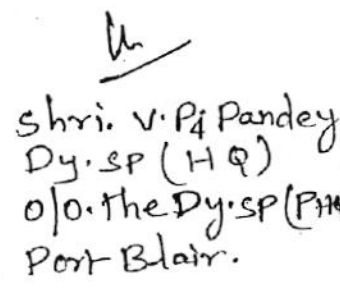 Shri. V. Pi Pandey
Dy. SP (HQ)
O/O. the Dy. SP (PHQ
Port Blair.